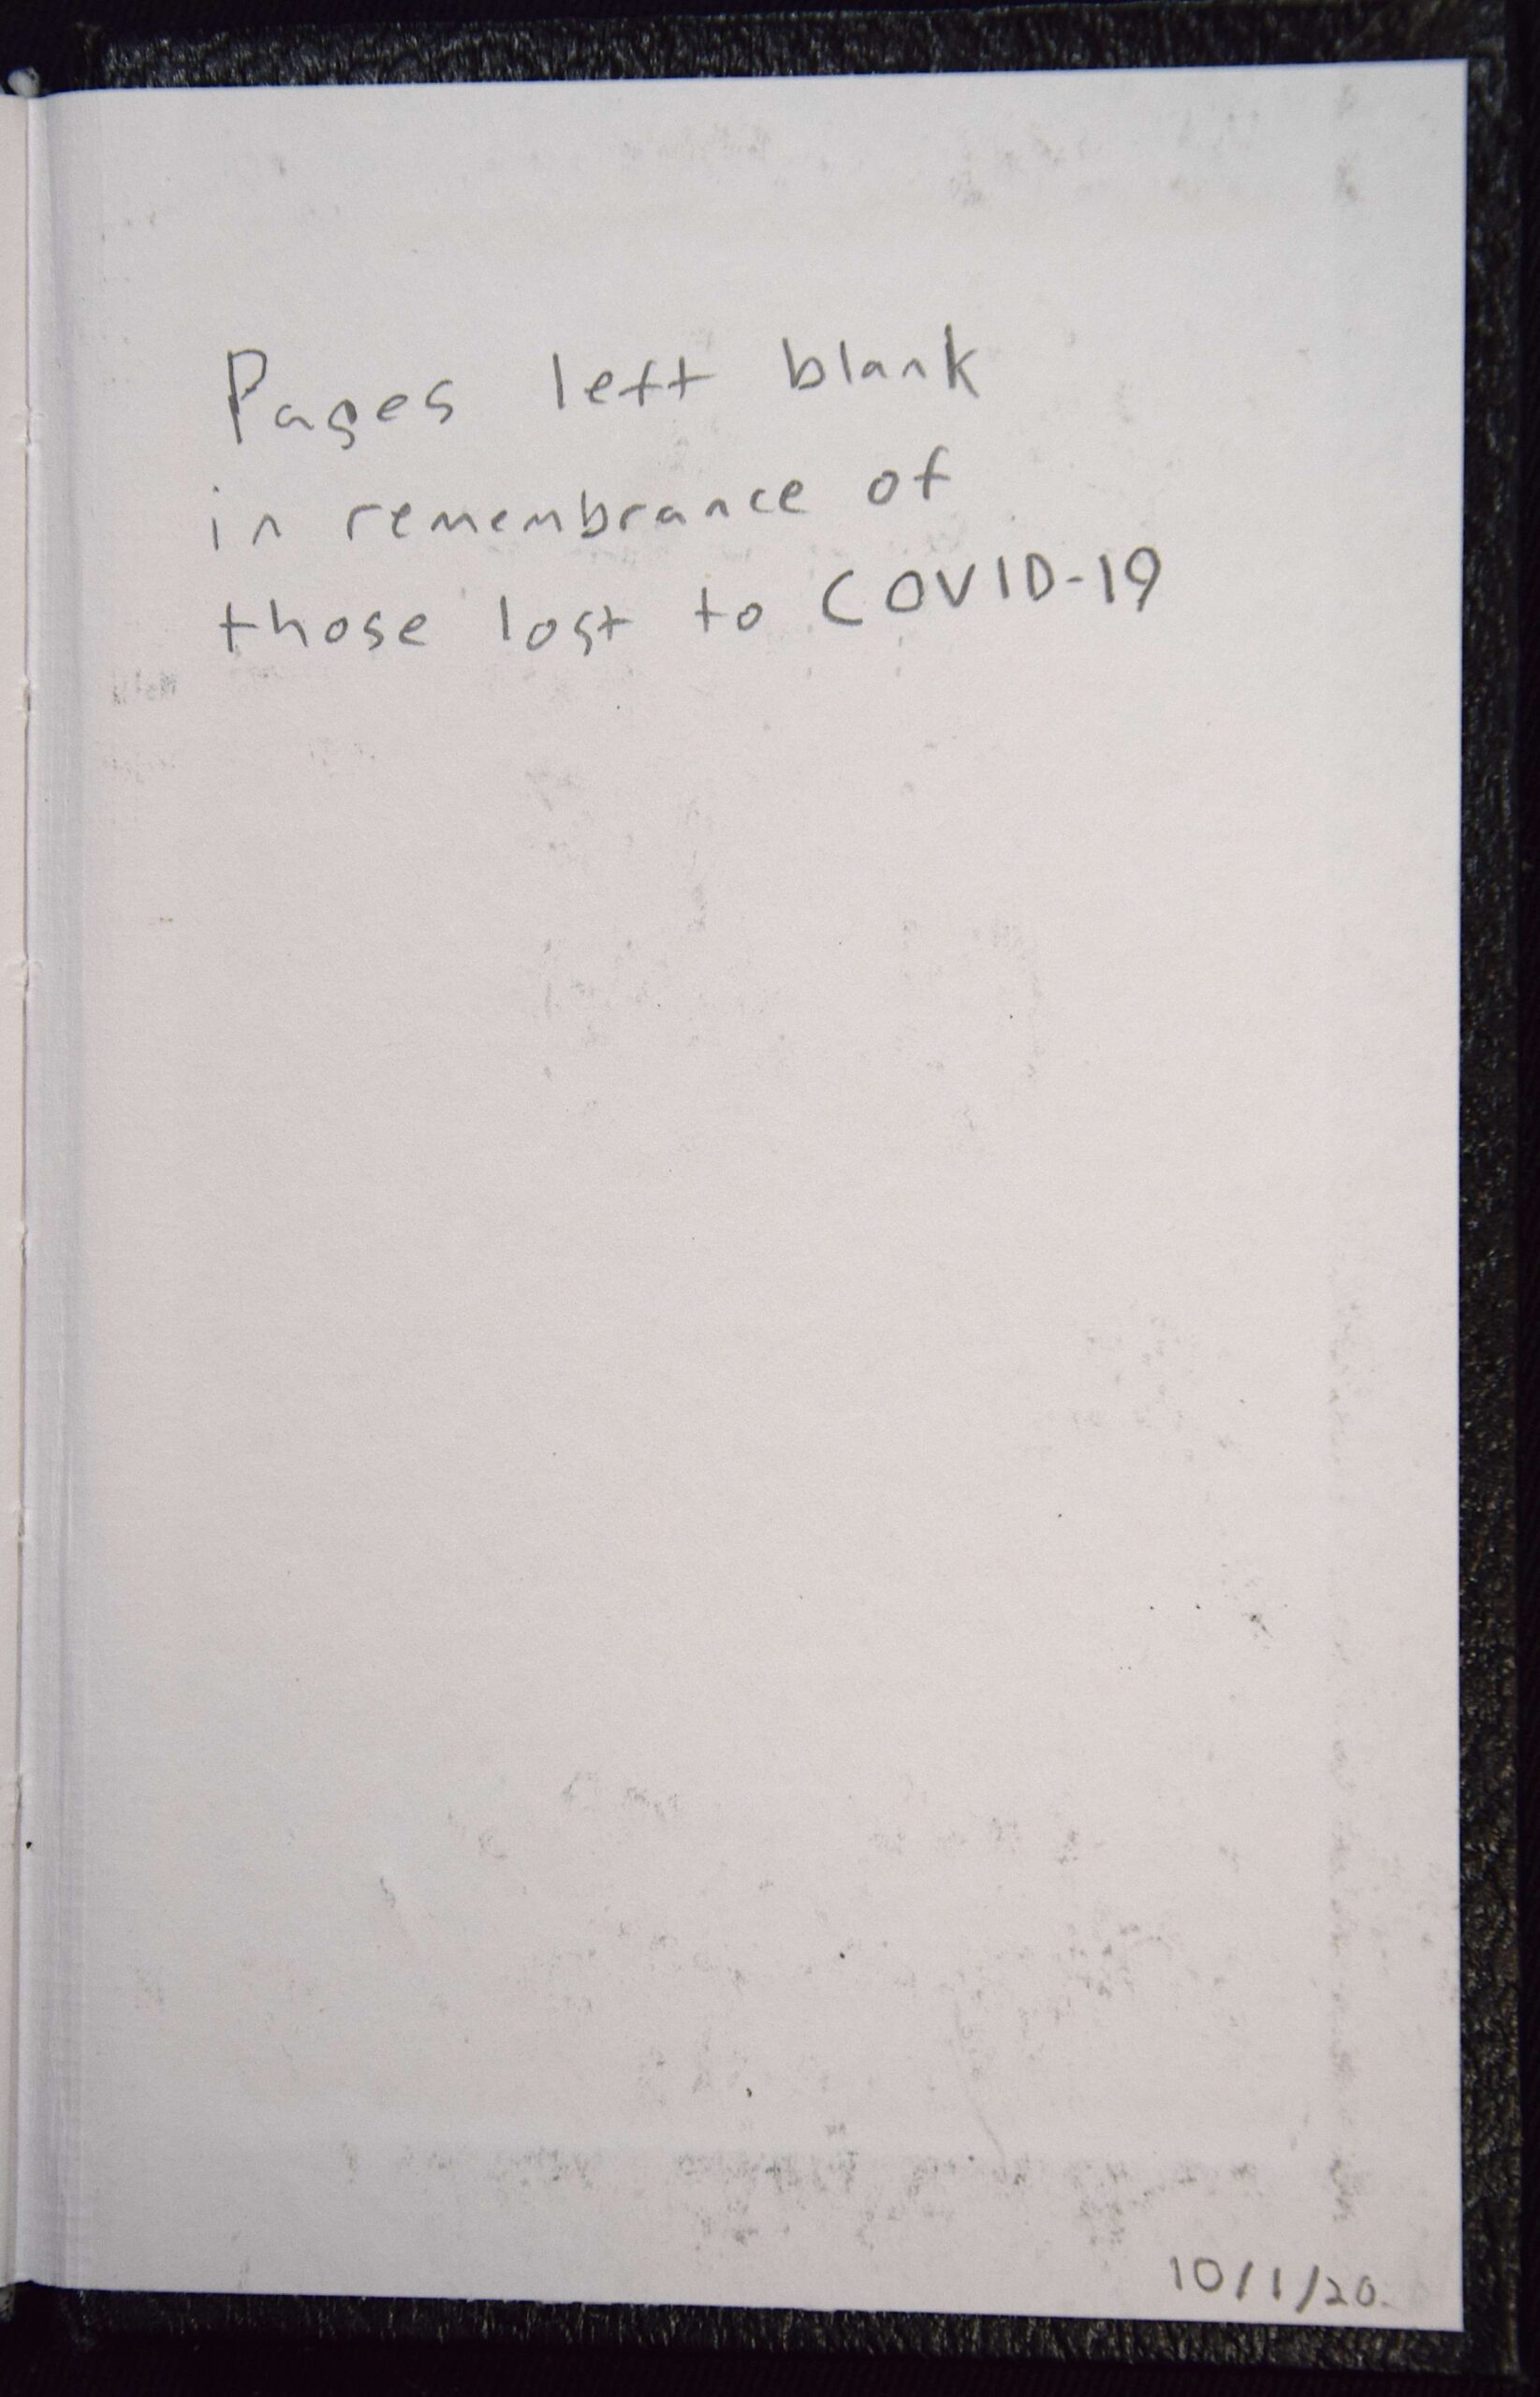 Pages left blank
in remembrance of
those lost to COVID-19
10/1/20